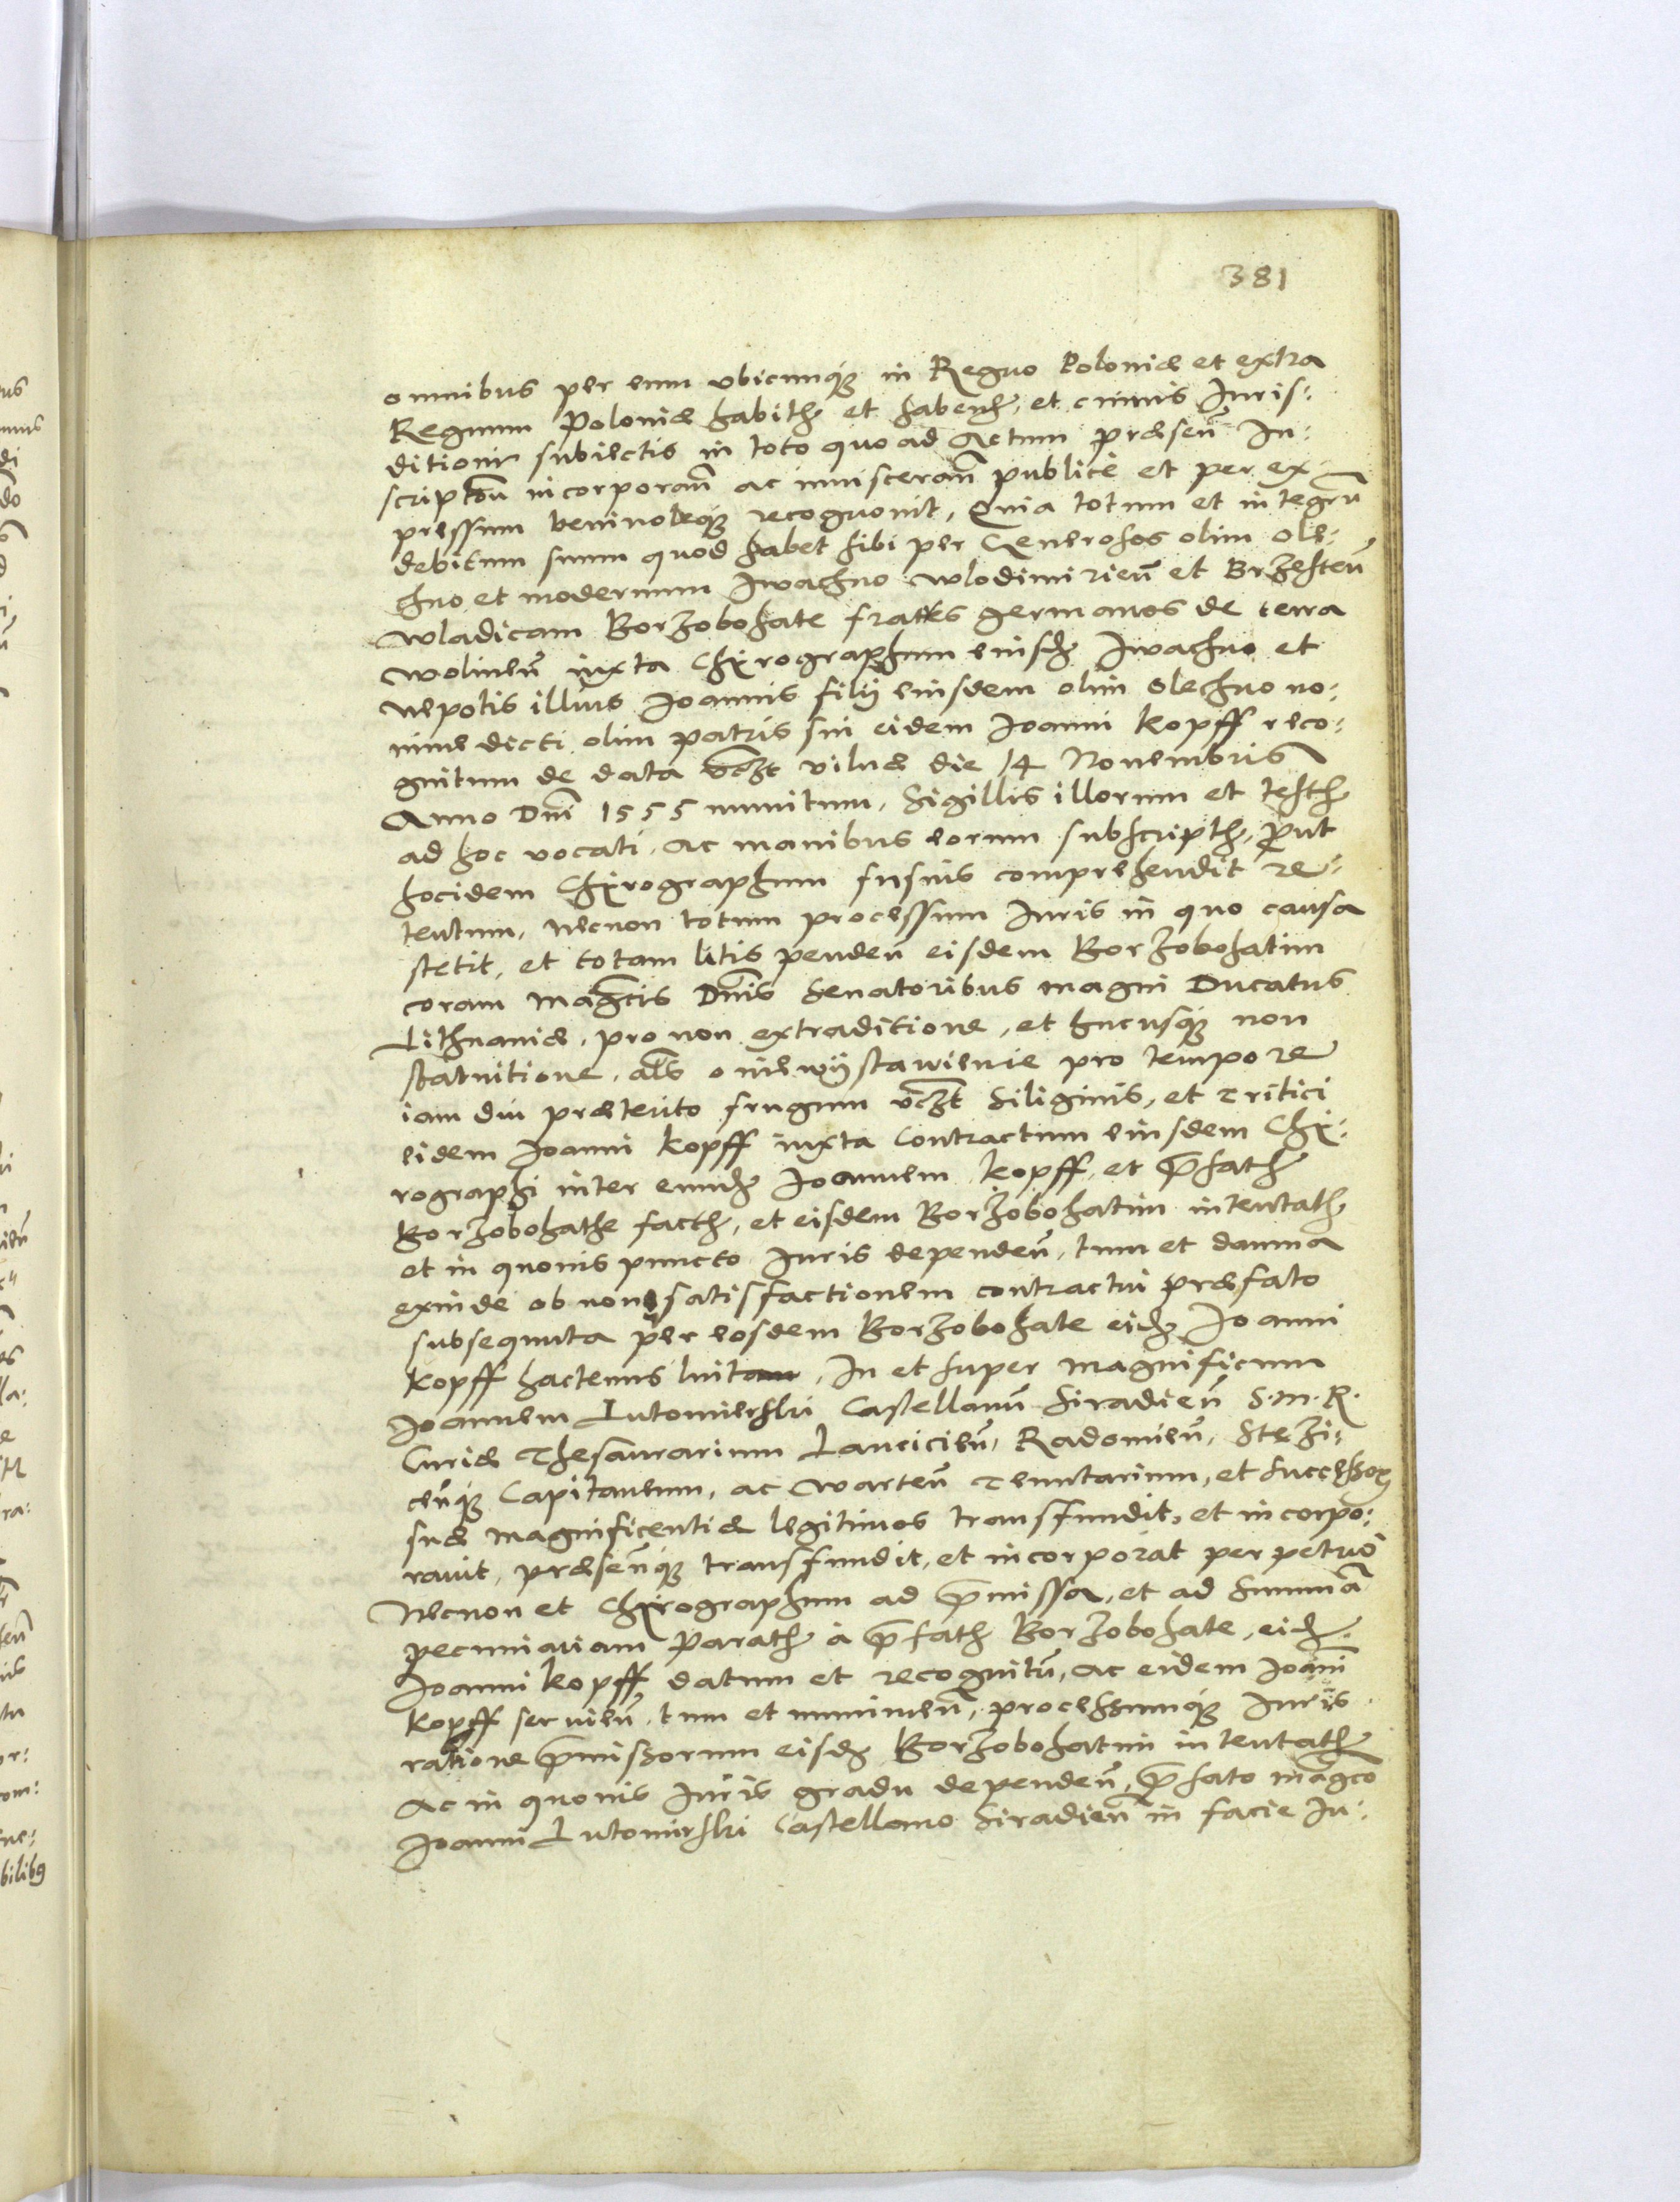 381
omnibus per eum vbicunq₃ in Regno Poloniæ et extra
Regnum Poloniæ habitis et habendis, et cuiuis Juris:
ditioni subiectis in toto quo ad Actum præsen̄ In:
scription̄ incorporan̄ ac inuisceran̄ publicè et per ex
pressum beniuoleq₃ recognouit, Quia totum et integrū
debitum suum quod habet sibi per Generosos olim Ole:
chno et modernum Jwachno Wlodimirien̄ et Brzesten̄
Wladicam Borzobohate fratres germanos de terra
Wolinen̄ iuxta Chirographum eiusdem Jwachno et
nepotis illius Joannis filij eiusdem olim Olechno no:
mine dicti olim patris sui eidem Joanni Kopff reco:
gnitum de data vc̄zt Vilnæ die 14 Nouembris
Anno Dni 1555 munitum, Sigillis illorum et testis
ad hoc vocati, ac manibus eorum subscriptis, prout
hocidem Chirographum fusius comprehendit re:
tentum, necnon totum processum Juris in quo causa
stetit, et totam litis penden̄ eisdem Borzobohatim
coram Magcis Dnis Senatoribus Magni Ducatus
Lithuaniæ, pro non extraditione, et hucusq₃ non
statuitione, als o niewÿstawienie pro tempore
iam diu præterito frugum vc̄zt Siliginis, et Tritici
eidem Joanni Kopff iuxta Contractum eiusdem Chi:
rographi inter eundem Joannem Kopff, et p̄fatos
Borzobohathe factum, et eisdem Borzobohatim intentatam
et in quouis puncto Juris dependen̄, tum et damna
exinde ob non satisfactionem contractui præfato
subsequuta per eosdem Borzobohate eidem Joanni
Kopff hactenus luit, In et super Magnificum
Joannem Lutomierski Castellanum Siradien̄ S. M. R.
Curiæ Thesaurarium Lancicien̄, Radomien̄, Stezi:
cen̄q₃ Capitaneum, ac Warten̄ Tenutarium, et Successores
suæ Magnificentiæ legitimos transfundit, et incorpo:
rauit, præsen̄q₃ transfundit, et incorporat perpetuò
Necnon et Chirographum ad p̄missa, et ad Summā
pecuniariam Paratam à p̄fatis Borzobohate, eidem
Joanni Kopff datum et recognitū, ac eidem Joāni
Kopff seruien̄, tum et munimen̄, processumq₃ Juris
ratione p̄missorum eisdem Borzobohatim intentatum
Ac in quouis Juris gradu dependen̄, p̄fato Magco
Joanni Lutomirski Castellano Siradien̄ in facie Ju: